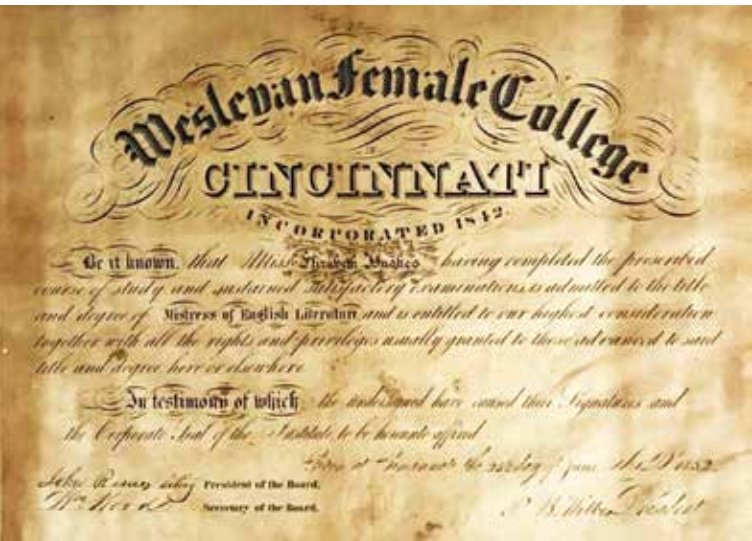 Wesleyan Female College
CINCINNATI
INCORPORATED 1842.
Be it known, that Miss Hughes having completed the prescribed
course of study and sustained satisfactory examinations is admitted to the title
and degree of Mistress of English Literature and is entitled to our highest consideration
together with all the rights and privileges usually granted to those advanced to said
title and degree here or elsewhere
In testimony of which the undersigned have caused their Signatures and
the Corporate Seal of the Institute to be hereunto affixed
day of June 1852
John President of the Board.
Wm Wood Secretary of the Board.
P. B. Wilber President